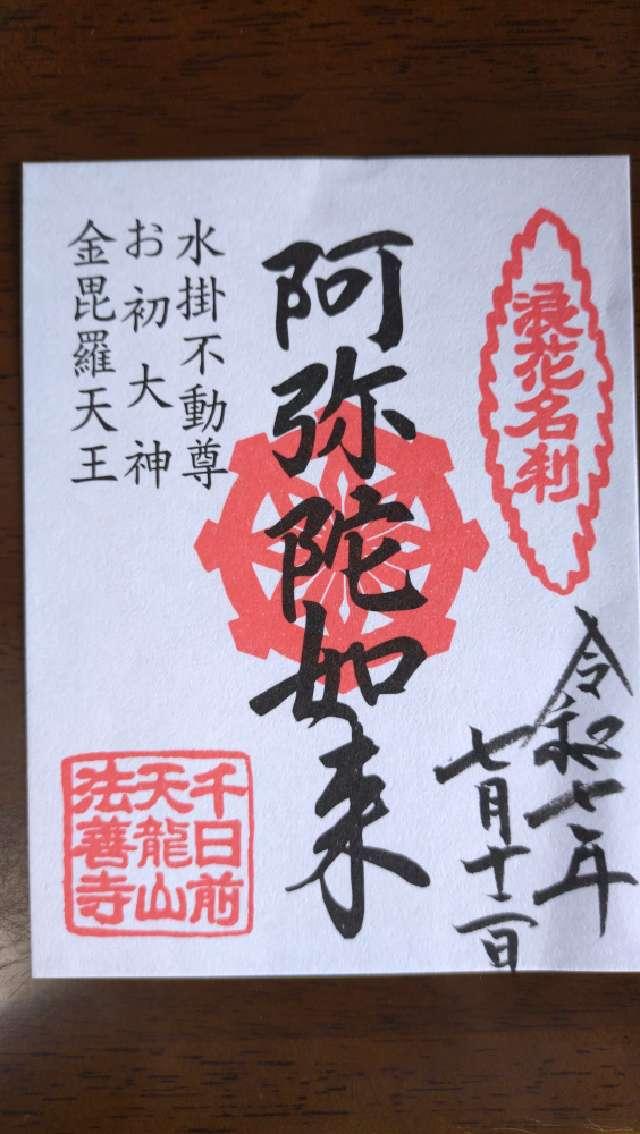 浪花名刹
令和七年
七月十二日
阿弥陀如来
水掛不動尊
お初大神
金毘羅天王
千日前
天龍山
法善寺